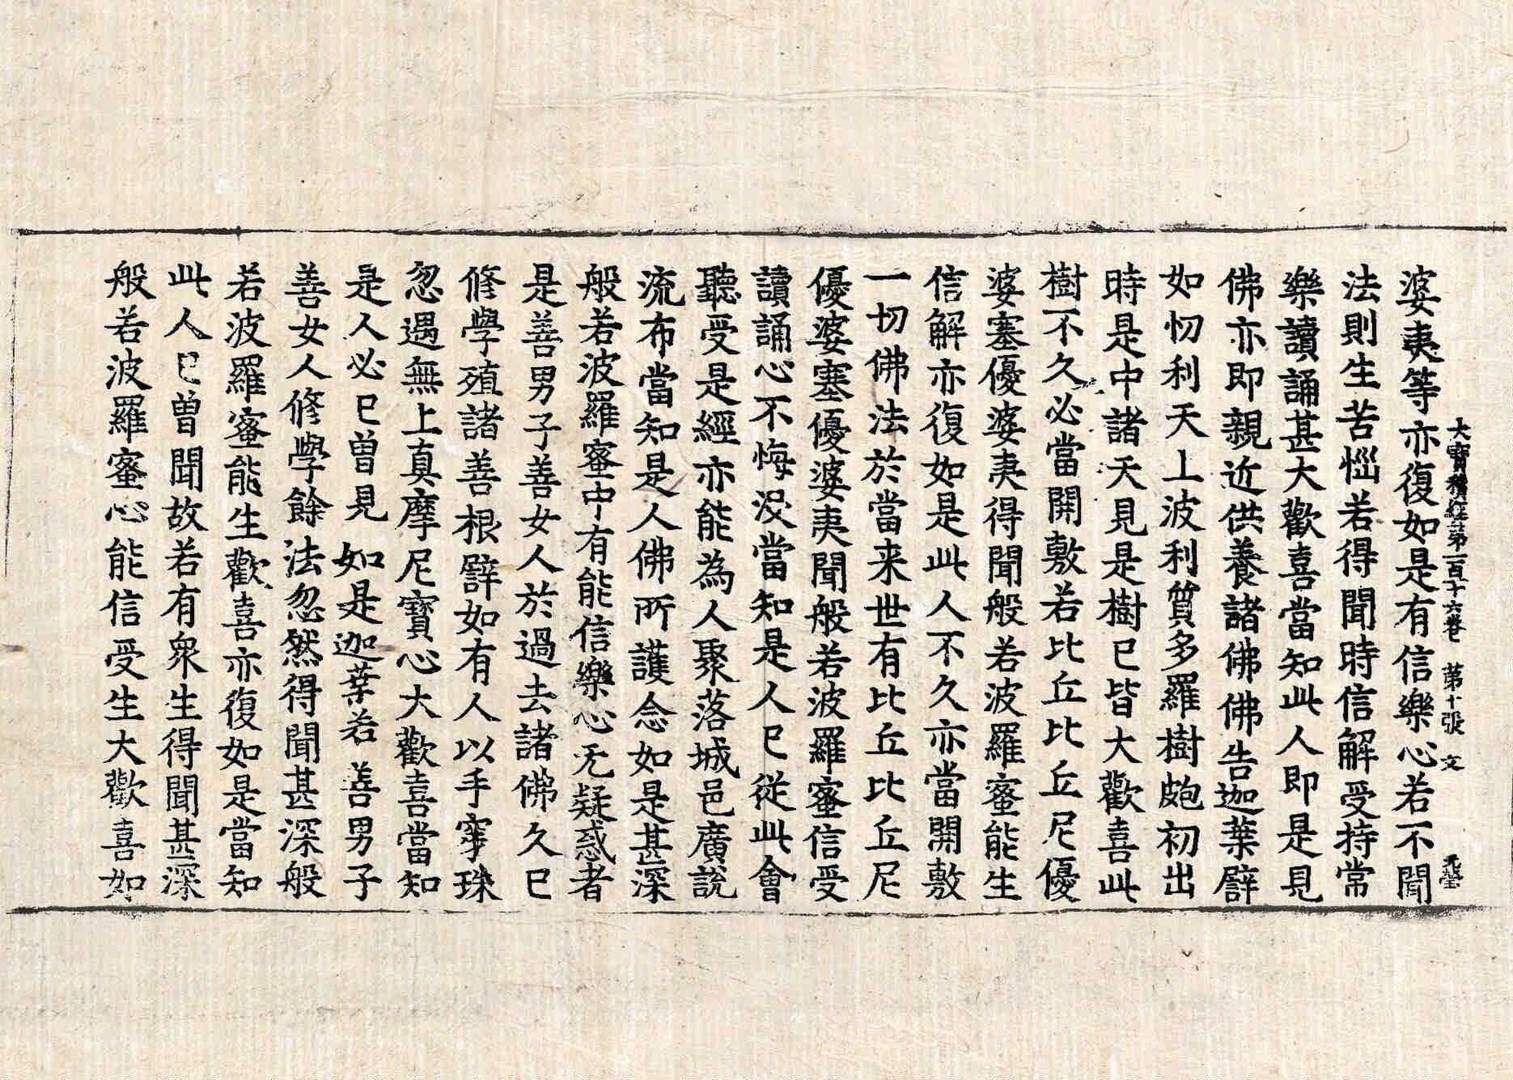 大寶積經第一百十六卷 第十張 文
婆夷等亦復如是有信樂心若不聞
法則生苦惱若得聞時信解受持常
樂讀誦甚大歡喜當知此人即是見
佛亦即親近供養諸佛佛告迦葉譬
如忉利天上波利質多羅樹皰初出
時是中諸天見是樹已皆大歡喜此
樹不久必當開敷若比丘比丘尼優
婆塞優婆夷得聞般若波羅蜜能生
信解亦復如是此人不久亦當開敷
一切佛法於當来世有比丘比丘尼
優婆塞優婆夷聞般若波羅蜜信受
讀誦心不悔沒當知是人已從此會
聽受是經亦能為人聚落城邑廣說
流布當知是人佛所護念如是甚深
般若波羅蜜中有能信樂心无疑惑者
是善男子善女人於過去諸佛久已
修學殖諸善根譬如有人以手穿珠
忽遇無上真摩尼寶心大歡喜當知
是人必已曾見如是迦葉若善男子
善女人修學餘法忽然得聞甚深般
若波羅蜜能生歡喜亦復如是當知
此人已曾聞故若有衆生得聞甚深
般若波羅蜜心能信受生大歡喜如